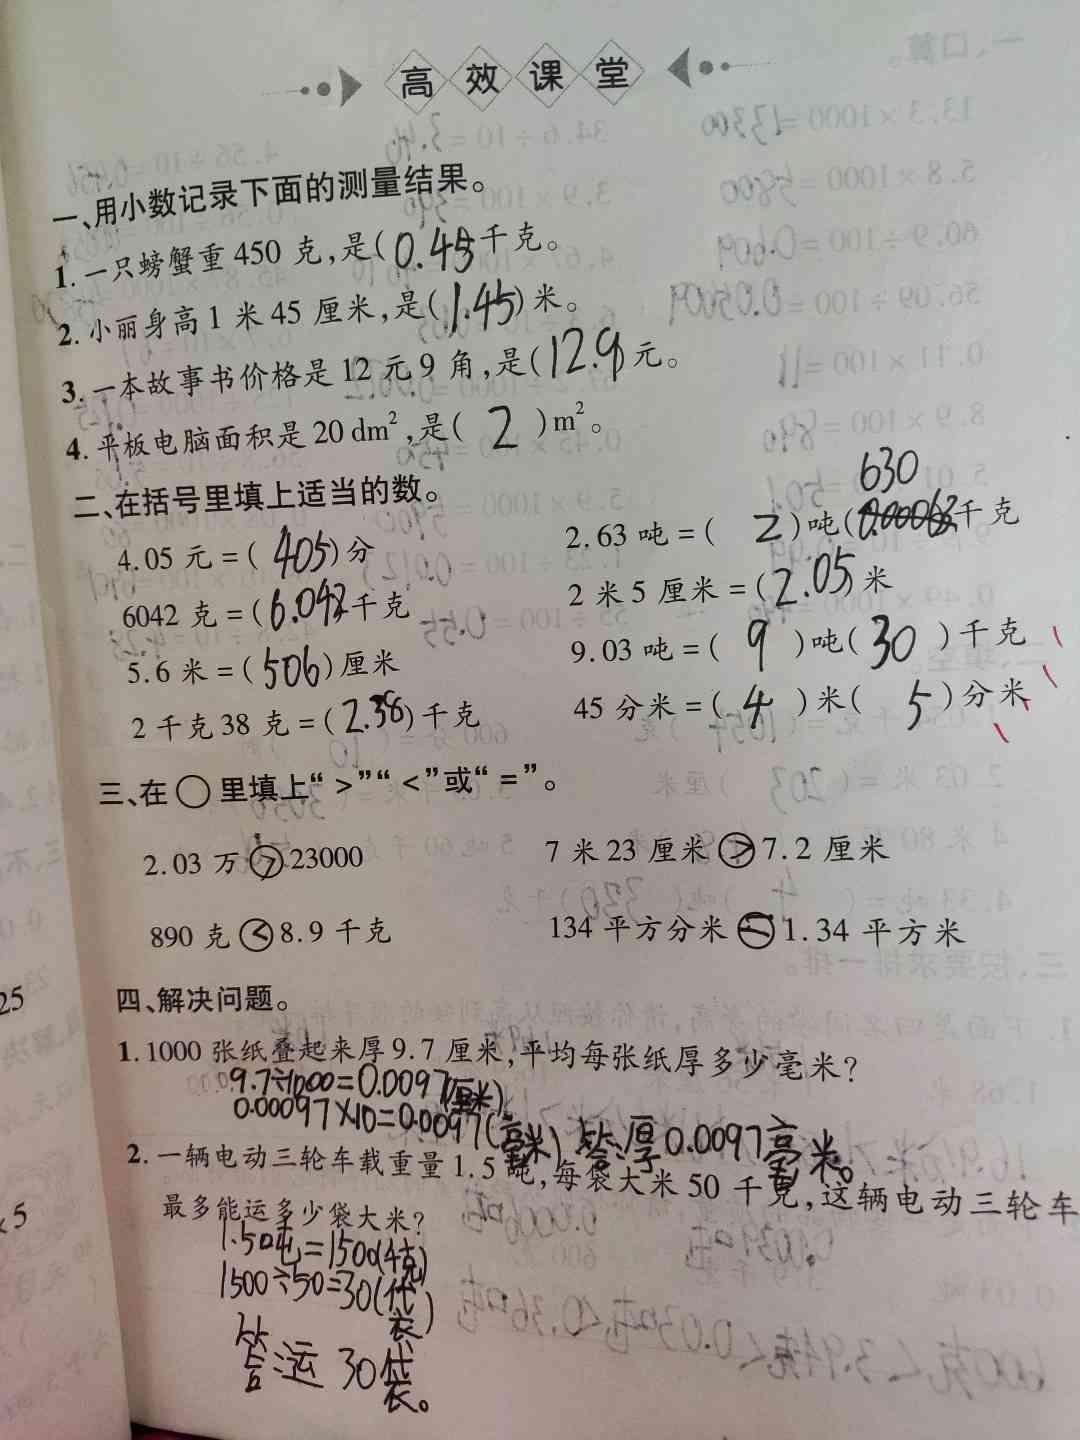 高效课堂
一、用小数记录下面的测量结果。
1. 一只螃蟹重 450 克,是(0.45)千克。
2. 小丽身高 1 米 45 厘米,是(1.45)米。
3. 一本故事书价格是 12 元 9 角,是(12.9)元。
4. 平板电脑面积是 20 dm²,是( 2 )m²。
二、在括号里填上适当的数。
630
4.05 元=(405)分 2.63 吨=( 2 )吨(0.00063)千克
6042 克=(6.042)千克 2 米 5 厘米=(2.05)米
5.6 米=(506)厘米 9.03 吨=( 9 )吨( 30 )千克
2 千克 38 克=(2.38)千克 45 分米=( 4 )米( 5 )分米
三、在○里填上“>”“<”或“=”。
2.03 万 > 23000 7 米 23 厘米 > 7.2 厘米
890 克 < 8.9 千克 134 平方分米 = 1.34 平方米
四、解决问题。
1. 1000 张纸叠起来厚 9.7 厘米,平均每张纸厚多少毫米?
9.7÷1000=0.0097(厘米)
0.00097×10=0.0097(毫米) 答:厚0.0097毫米。
2. 一辆电动三轮车载重量 1.5 吨,每袋大米 50 千克,这辆电动三轮车
最多能运多少袋大米?
1.50吨=1500(千克)
1500÷50=30(袋)
答:运30袋。
25
×5